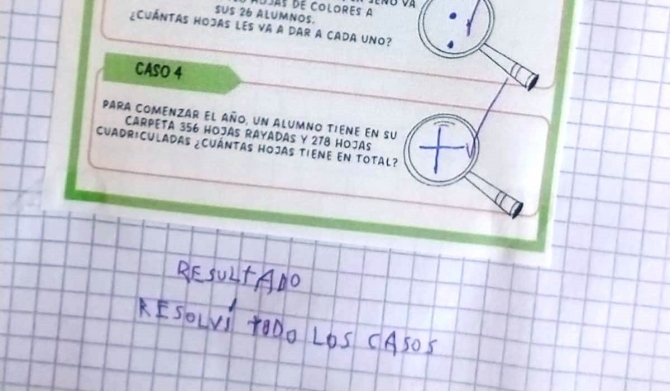 HOJAS DE COLORES A
SUS 26 ALUMNOS.
¿CUÁNTAS HOJAS LES VA A DAR A CADA UNO?
CASO 4
PARA COMENZAR EL AÑO, UN ALUMNO TIENE EN SU
CARPETA 356 HOJAS RAYADAS Y 278 HOJAS
CUADRICULADAS ¿CUÁNTAS HOJAS TIENE EN TOTAL?
+
RESULTADO
RESOLVÍ TODO LOS CASOS